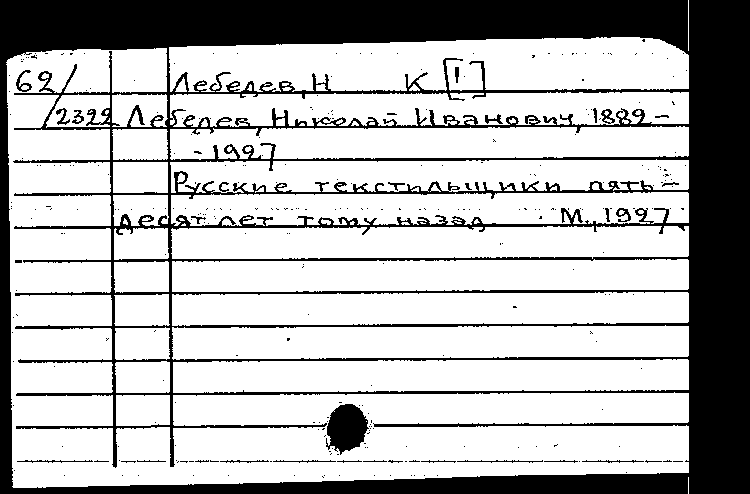 62/ Лебедев, Н К [!]
/2322 Лебедев, Николай Иванович, 1889-
-1927
Русские текстильщики пять-
десят лет тому назад. М., 1927.